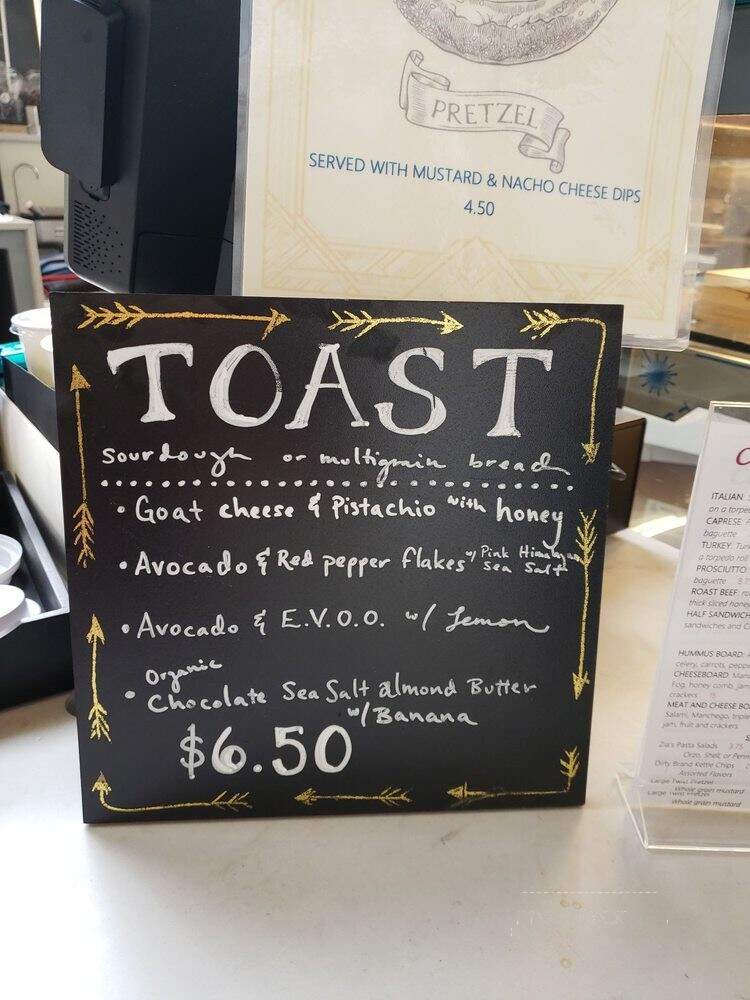 PRETZEL
SERVED WITH MUSTARD & NACHO CHEESE DIPS
4.50
TOAST
sourdough or multigrain bread
• Goat cheese & Pistachio with honey
• Avocado & Red pepper flakes w/ Pink Himalayan
Sea Salt
• Avocado & E.V.O.O. w/ Lemon
Organic
• Chocolate Sea Salt almond Butter
w/ Banana
$6.50
ITALIAN
on a torpe
CAPRESE
baguette
TURKEY
a torpedo roll
PROSCIUTTO
baguette
ROAST BEEF
thick sliced hone
HALF SANDWICH
sandwiches and C
HUMMUS BOARD:
celery, carrots, pepp
CHEESEBOARD: Man
Fog, honey comb, jam
crackers 15
MEAT AND CHEESE BO
Salami, Manchego, trip
jam, fruit and crackers
Zia's Pasta Salads 3.75
Orzo, Shell, or Penn
Dirty Brand Kettle Chips 2
Assorted Flavors
Large Twist Pretzel
Whole grain mustard
Large Twist Pretzel
Whole grain mustard